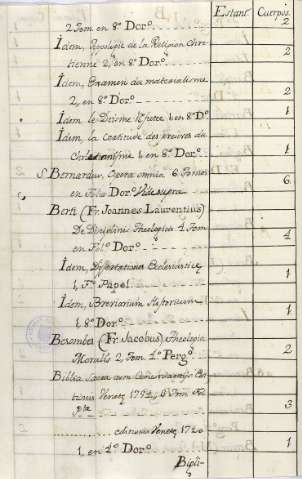 Estant.ᵉ Cuerpos.
2 Tom en 8º Dorº 2
Idem, Apologie de la Religion Chre-
tienne 2, en 8º Dorº 2
Idem, Examen du materialisme
2, en 8º Dorº 2
Idem le Deisme refuté 1 en 8º Dº 1
Idem, la Certitude des preuves du
Christianisme 1 en 8º Dorº 1
S. Bernardus, Opera omnia 6 Tomos
en Folio Dorº Vide supra 6
Berti (Fr. Joannes Laurentius)
De Disciplinis Theologicis 4 Tom
en Folº Dorº 4
Idem, Dissertationes Ecclesiasticę
1, Fº Papel 1
Idem, Breviarium Historicum
1, 8º Dorº 1
Besombes (Fr. Jacobus) Theologia
Moralis 2, Tom 4º Pergº 2
Biblia Sacra cum
Venetę 3
editionis Venetę
1 en 4º Dorº 1
Bipli-